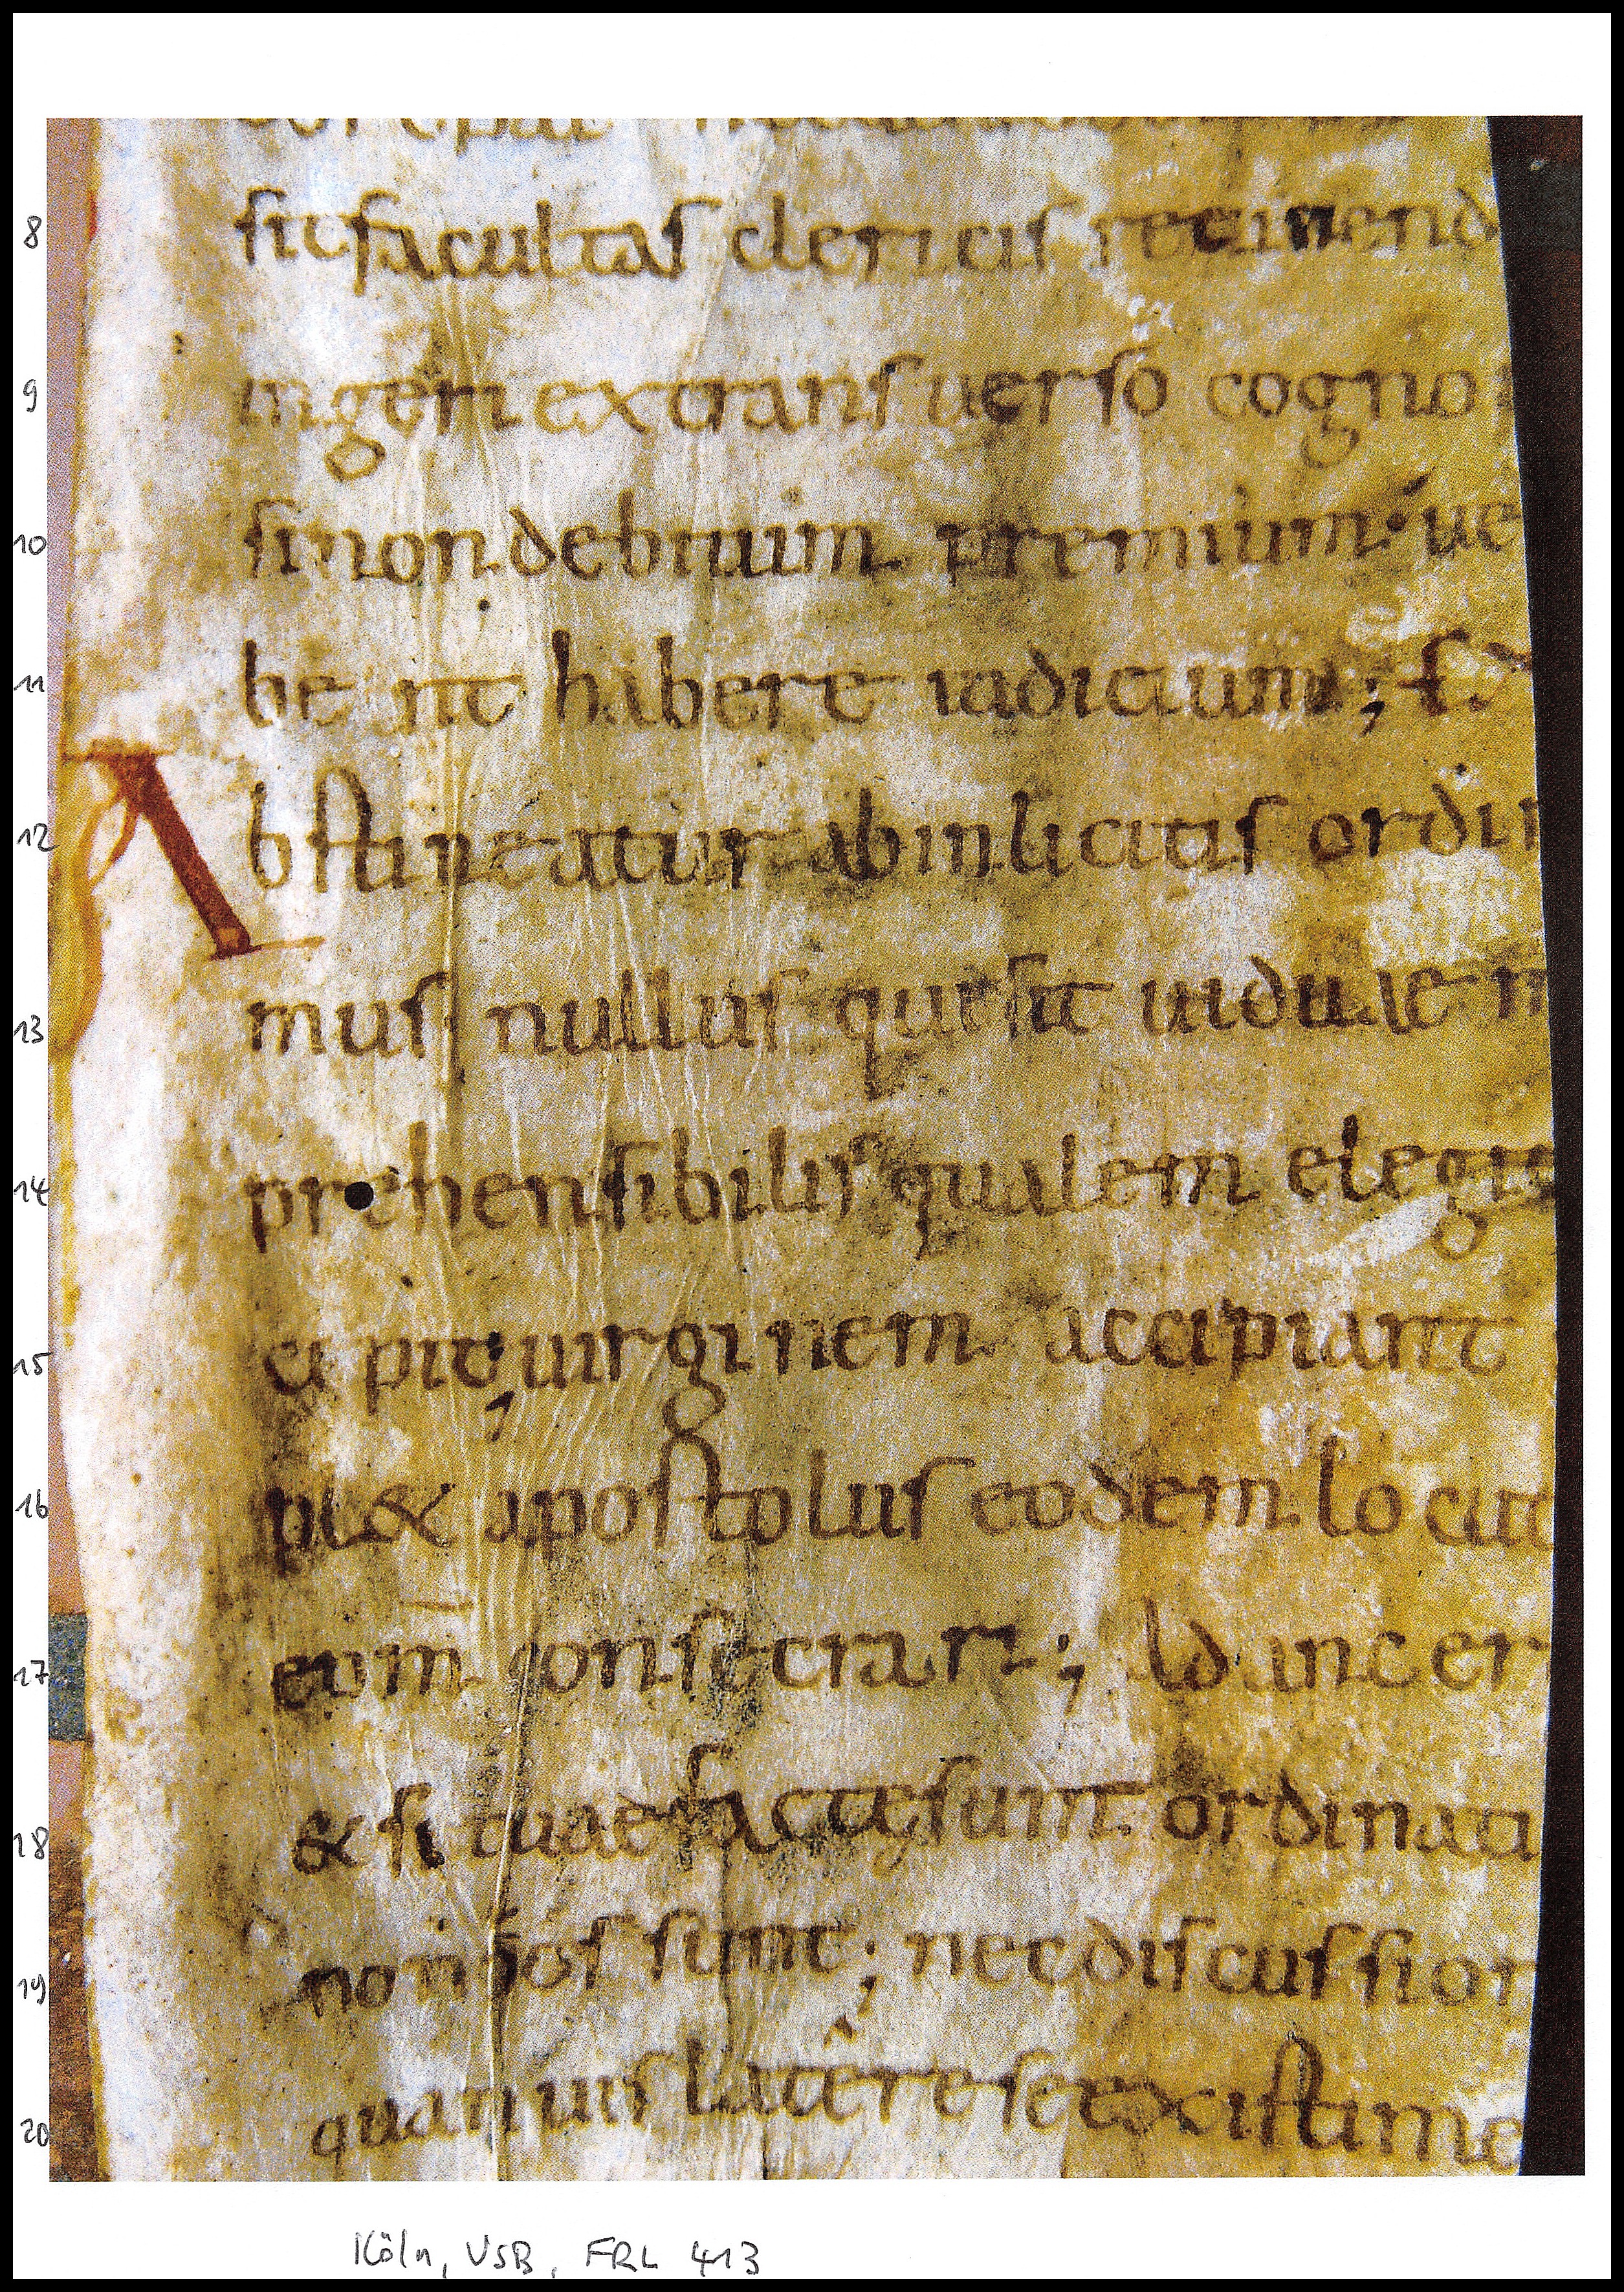 8 sit facultas clericis retinend
9 ingeri ex transuerso cogno
10 si non debitum premium · ue
11 be nt habere iudicium ; ex
12 Abstineatur ab inlicitis ordin
13 mus nullus qui sit uiduae
14 prehensibilis qualem elegis
15 cipit ; uirginem accipiant
16 pl& apostolus eodem loca
17 eom̄ consecrari ; ad ancer
18 & si tuae factę sunt ordinati
19 non possunt ; nec discussion
20 quamuis latere se existime
Köln, USB, FRL 413